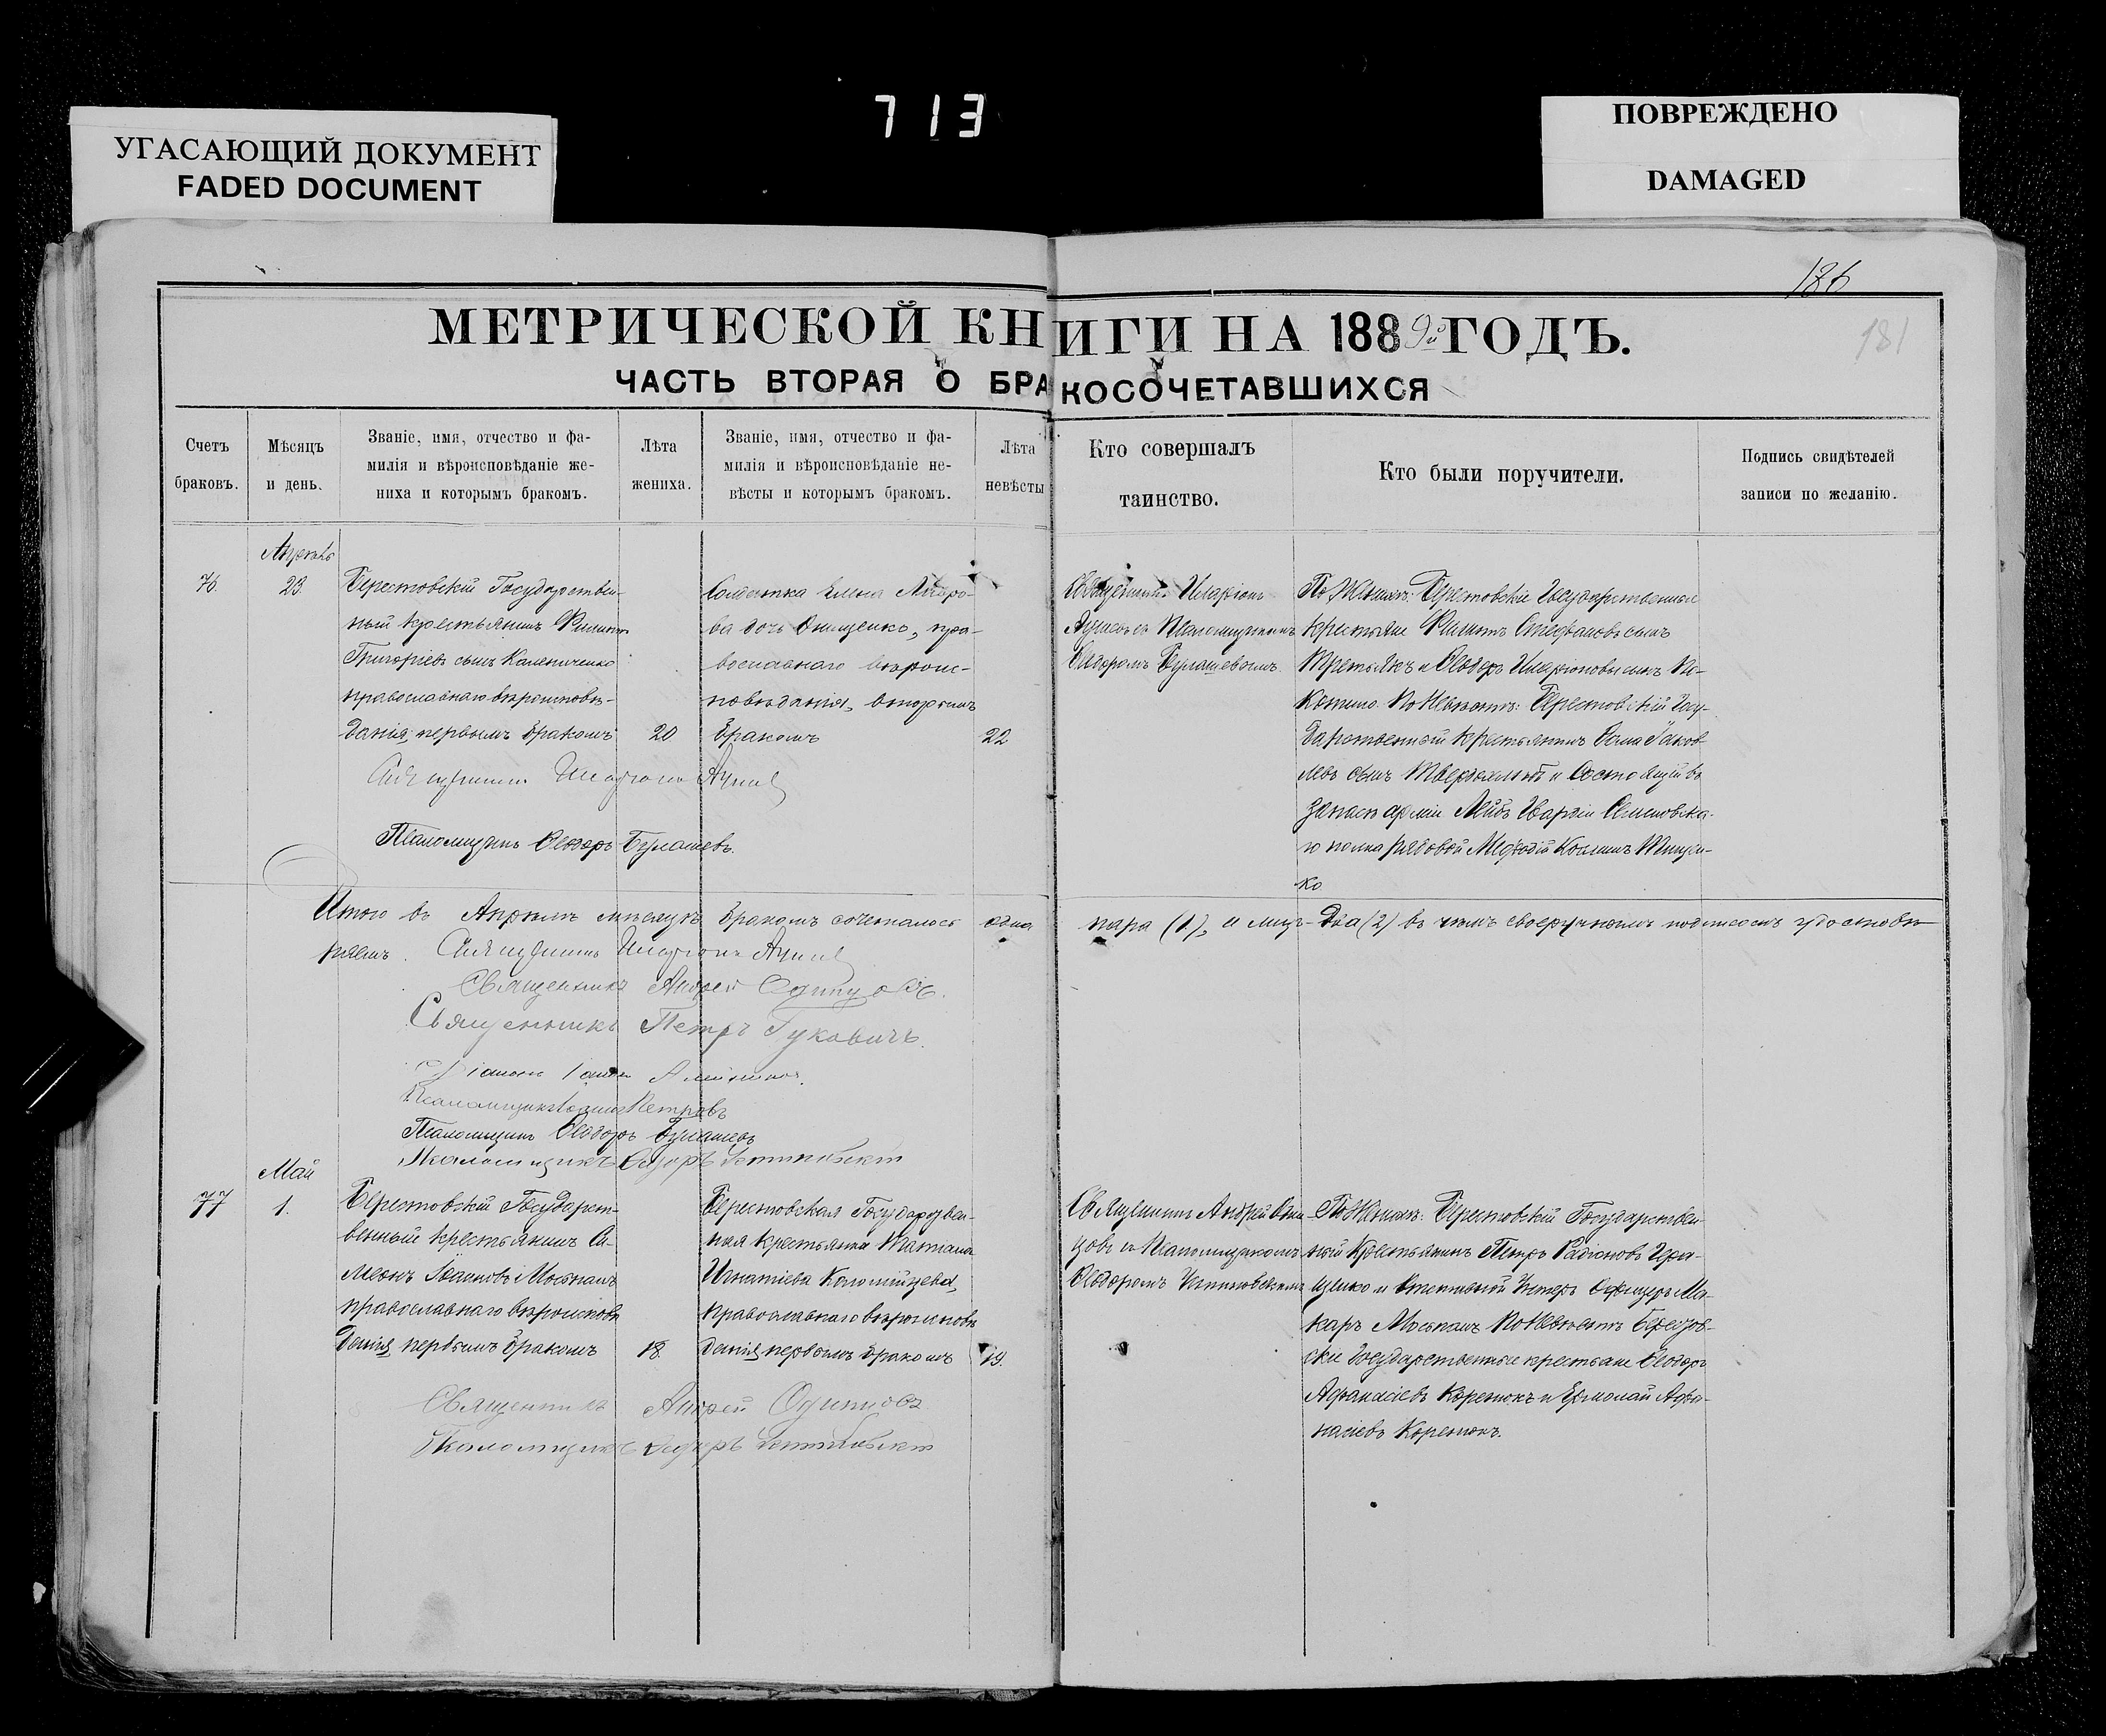 713
УГАСАЮЩИЙ ДОКУМЕНТ
FADED DOCUMENT
ПОВРЕЖДЕНО
DAMAGED
186
181
МЕТРИЧЕСКОЙ КНИГИ НА 1889й ГОДЪ.
ЧАСТЬ ВТОРАЯ О БРАКОСОЧЕТАВШИХСЯ
Счетъ
браковъ.
Мѣсяцъ
и день.
Званіе, имя, отчество и фа-
милія и вѣроисповѣданіе же-
ниха и которымъ бракомъ.
Лѣта
жениха.
Званіе, имя, отчество и фа-
милія и вѣроисповѣданіе не-
вѣсты и которымъ бракомъ.
Лѣта
невѣсты
Кто совершалъ
таинство.
Кто были поручители.
Подпись свидѣтелей
записи по желанію.
76.
Апрель
23.
Берестовскій Государствен-
ный крестьянинъ Филиппъ
Григоріевъ сынъ Калениченко
православнаго вѣроисповѣ-
данія, первымъ бракомъ
20
Солдатка Елена
дочь Онищенко, пра-
вославнаго вѣроис-
повѣданія, вторымъ
бракомъ
22
Священникъ Иларіонъ
съ Псаломщикомъ
Ѳедоромъ Булашевымъ.
По Женихѣ: Берестовскіе Государственные
крестьяне Филиппъ Стефановъ сынъ
Третьякъ и Ѳеодоръ Иларіоновъ сынъ
По Невѣстѣ: Берестовскій Госу-
дарственный крестьянинъ Іаков-
левъ сынъ и Состоящій въ
запасѣ арміи Лейбъ Гвардіи Семеновска-
го полка рядовой Меѳодій
ко
Священникъ Иларіонъ
Псаломщикъ Ѳеодоръ Булашевъ.
Итого въ Апрѣлѣ мѣсяцѣ бракомъ сочеталось одна пара (1), а лицъ два (2) въ чемъ своеручнымъ подписомъ удостовѣ-
ряемъ. Священникъ Иларіонъ
Священникъ Андрей Одинцовъ.
Священникъ Петръ Гуковичъ.
Діаконъ Іоаннъ
Псаломщикъ Петровъ
Псаломщикъ Ѳеодоръ Булашевъ
Псаломщикъ Ѳедоръ
77
Май
1.
Берестовскій Государст-
венный крестьянинъ Си-
меонъ Іоанновъ Москалъ
православнаго вѣроисповѣ
данія, первымъ бракомъ
18.
Берестовская Государствен-
ная крестьянка Татіана
Игнатіева Коломійцева,
православнаго вѣроисповѣ
данія, первымъ бракомъ
19.
Священникъ Андрей Один-
цовъ съ Псаломщикомъ
Ѳеодоромъ
По Женихѣ: Берестовскій Государствен-
ный Крестьянинъ Петръ Радіоновъ Гера-
щенко и Унтеръ Офицеръ Ма-
каръ Москалъ По Невѣстѣ Берестов-
скіе Государственные крестьяне Ѳеодоръ
Аѳанасіевъ Коренюкъ и Ермолай Аѳа-
насіевъ Коренюкъ.
Священникъ Андрей Одинцовъ
Псаломщикъ Ѳедоръ